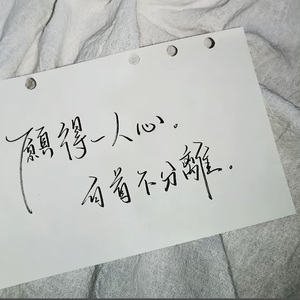 願得一人心。
白首不分離.